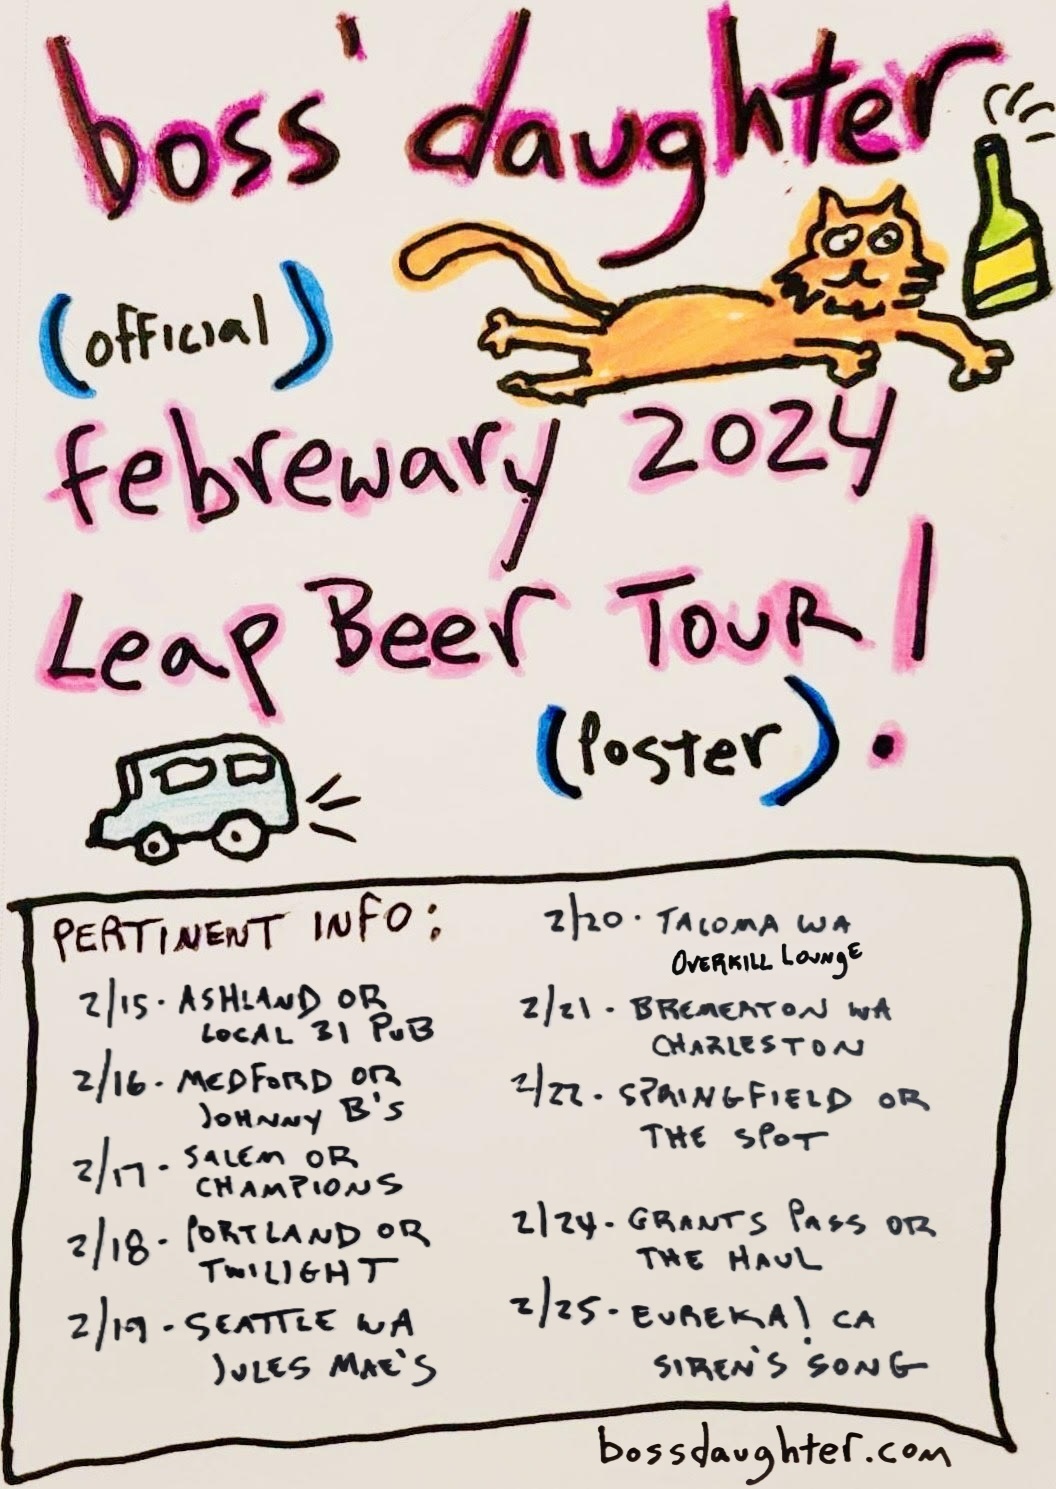 boss' daughter
(official)
febrewary 2024
Leap Beer Tour!
(Poster)
PERTINENT INFO:
2/15 · ASHLAND OR
LOCAL 31 PUB
2/16 · MEDFORD OR
JOHNNY B'S
2/17 · SALEM OR
CHAMPIONS
2/18 · PORTLAND OR
TWILIGHT
2/19 · SEATTLE WA
JULES MAE'S
2/20 · TACOMA WA
OVERKILL LOUNGE
2/21 · BREMERTON WA
CHARLESTON
2/22 · SPRINGFIELD OR
THE SPOT
2/24 · GRANTS PASS OR
THE HAUL
2/25 · EUREKA! CA
SIREN'S SONG
bossdaughter.com